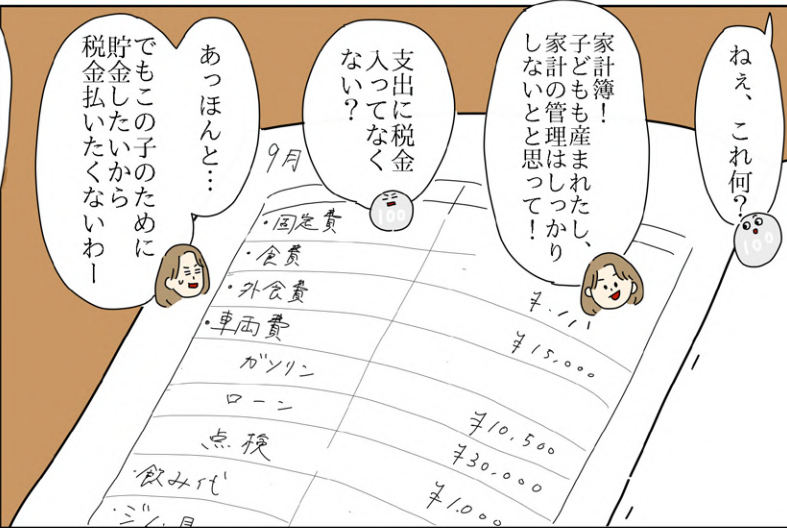 ねぇ、これ何？
100
家計簿！
子どもも産まれたし、
家計の管理はしっかり
しないとと思って！
支出に税金
入ってなく
ない？
100
あっほんと…
でもこの子のために
貯金したいから
税金払いたくないわー
9月
・固定費
・食費
・外食費 ¥15,000
・車両費
ガソリン ¥10,500
ローン ¥30,000
点検 ¥1,000
・飲み代